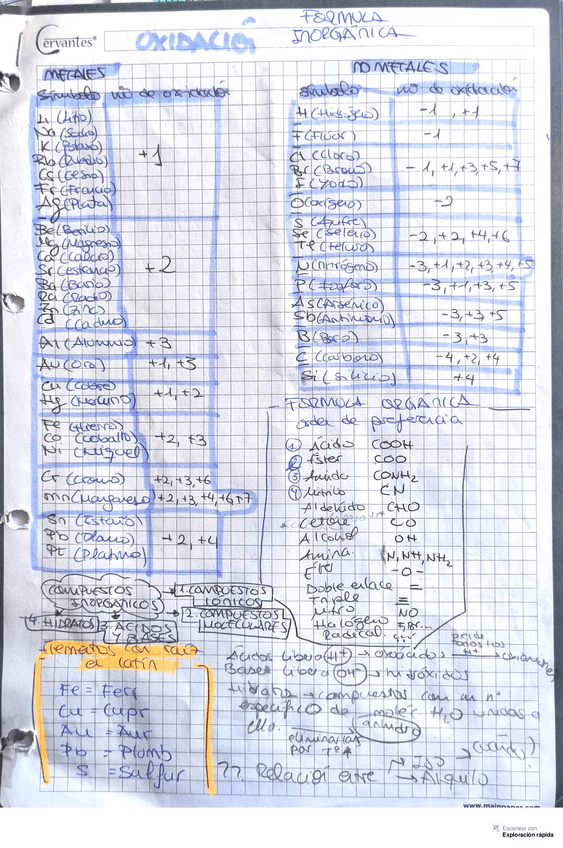 Cervantes®
OXIDACIÓN
FORMULA
INORGÁNICA
METALES
Símbolo nº de oxidación
Li (Litio)
Na (Sodio)
K (Potasio)
Rb (Rubidio)
Cs (Cesio)
Fr (Francio)
Ag (Plata)
+1
Be (Berilio)
Mg (Magnesio)
Ca (Calcio)
Sr (estroncio)
Ba (Bario)
Ra (Radio)
Zn (Zinc)
Cd (Cadmio)
+2
Al (Aluminio) +3
Au (Oro) +1, +3
Cu (Cobre)
Hg (Mercurio)
+1, +2
Fe (Hierro)
Co (Cobalto)
Ni (Niquel)
+2, +3
Cr (Cromo) +2, +3, +6
Mn (Manganeso) +2, +3, +4, +6, +7
Sn (Estaño)
Pb (Plomo)
Pt (Platino)
+2, +4
NO METALES
Símbolo nº de oxidación
H (Hidrógeno) -1, +1
F (Flúor) -1
Cl (Cloro)
Br (Bromo)
I (Yodo)
-1, +1, +3, +5, +7
O (oxígeno) -2
S (Azufre)
Se (Selenio)
Te (Teluro)
-2, +2, +4, +6
N (nitrógeno) -3, +1, +2, +3, +4, +5
P (fósforo) -3, +1, +3, +5
As (Arsénico)
Sb (Antimonio)
-3, +3, +5
B (Boro) -3, +3
C (Carbono) -4, +2, +4
Si (silicio) +4
FORMULA ORGÁNICA
orden de preferencia
① Ácido COOH
② Éster COO
③ Amida CONH₂
④ Nitrilo CN
Aldehído CHO
Cetona CO
Alcohol OH
Amina N, NH, NH₂
Éter -O-
Doble enlace =
Triple ≡
Nitro NO
Halógeno F, Br...
Radical
COMPUESTOS
INORGÁNICOS
1. COMPUESTOS
IÓNICOS
2. COMPUESTOS
MOLECULARES
3. ÁCIDOS
Y BASES
4. HIDRATOS
Elementos con raíz
el latín
Fe = Ferr
Cu = Cupr
Au = Aur
Pb = Plumb
S = Sulfur
Ácidos libera H⁺ → oxoácidos → pierde todos los H⁺ → oxoaniones
Bases libera OH⁻ → hidróxidos
Hidratos → compuestos con un nº
específico de moléc H₂O unidas a
ello.
eliminarlas
por Tª
anhidro
??. Relación entre
→ Alquilo
www.mainpaper.com
Escanear con
Exploración rápida